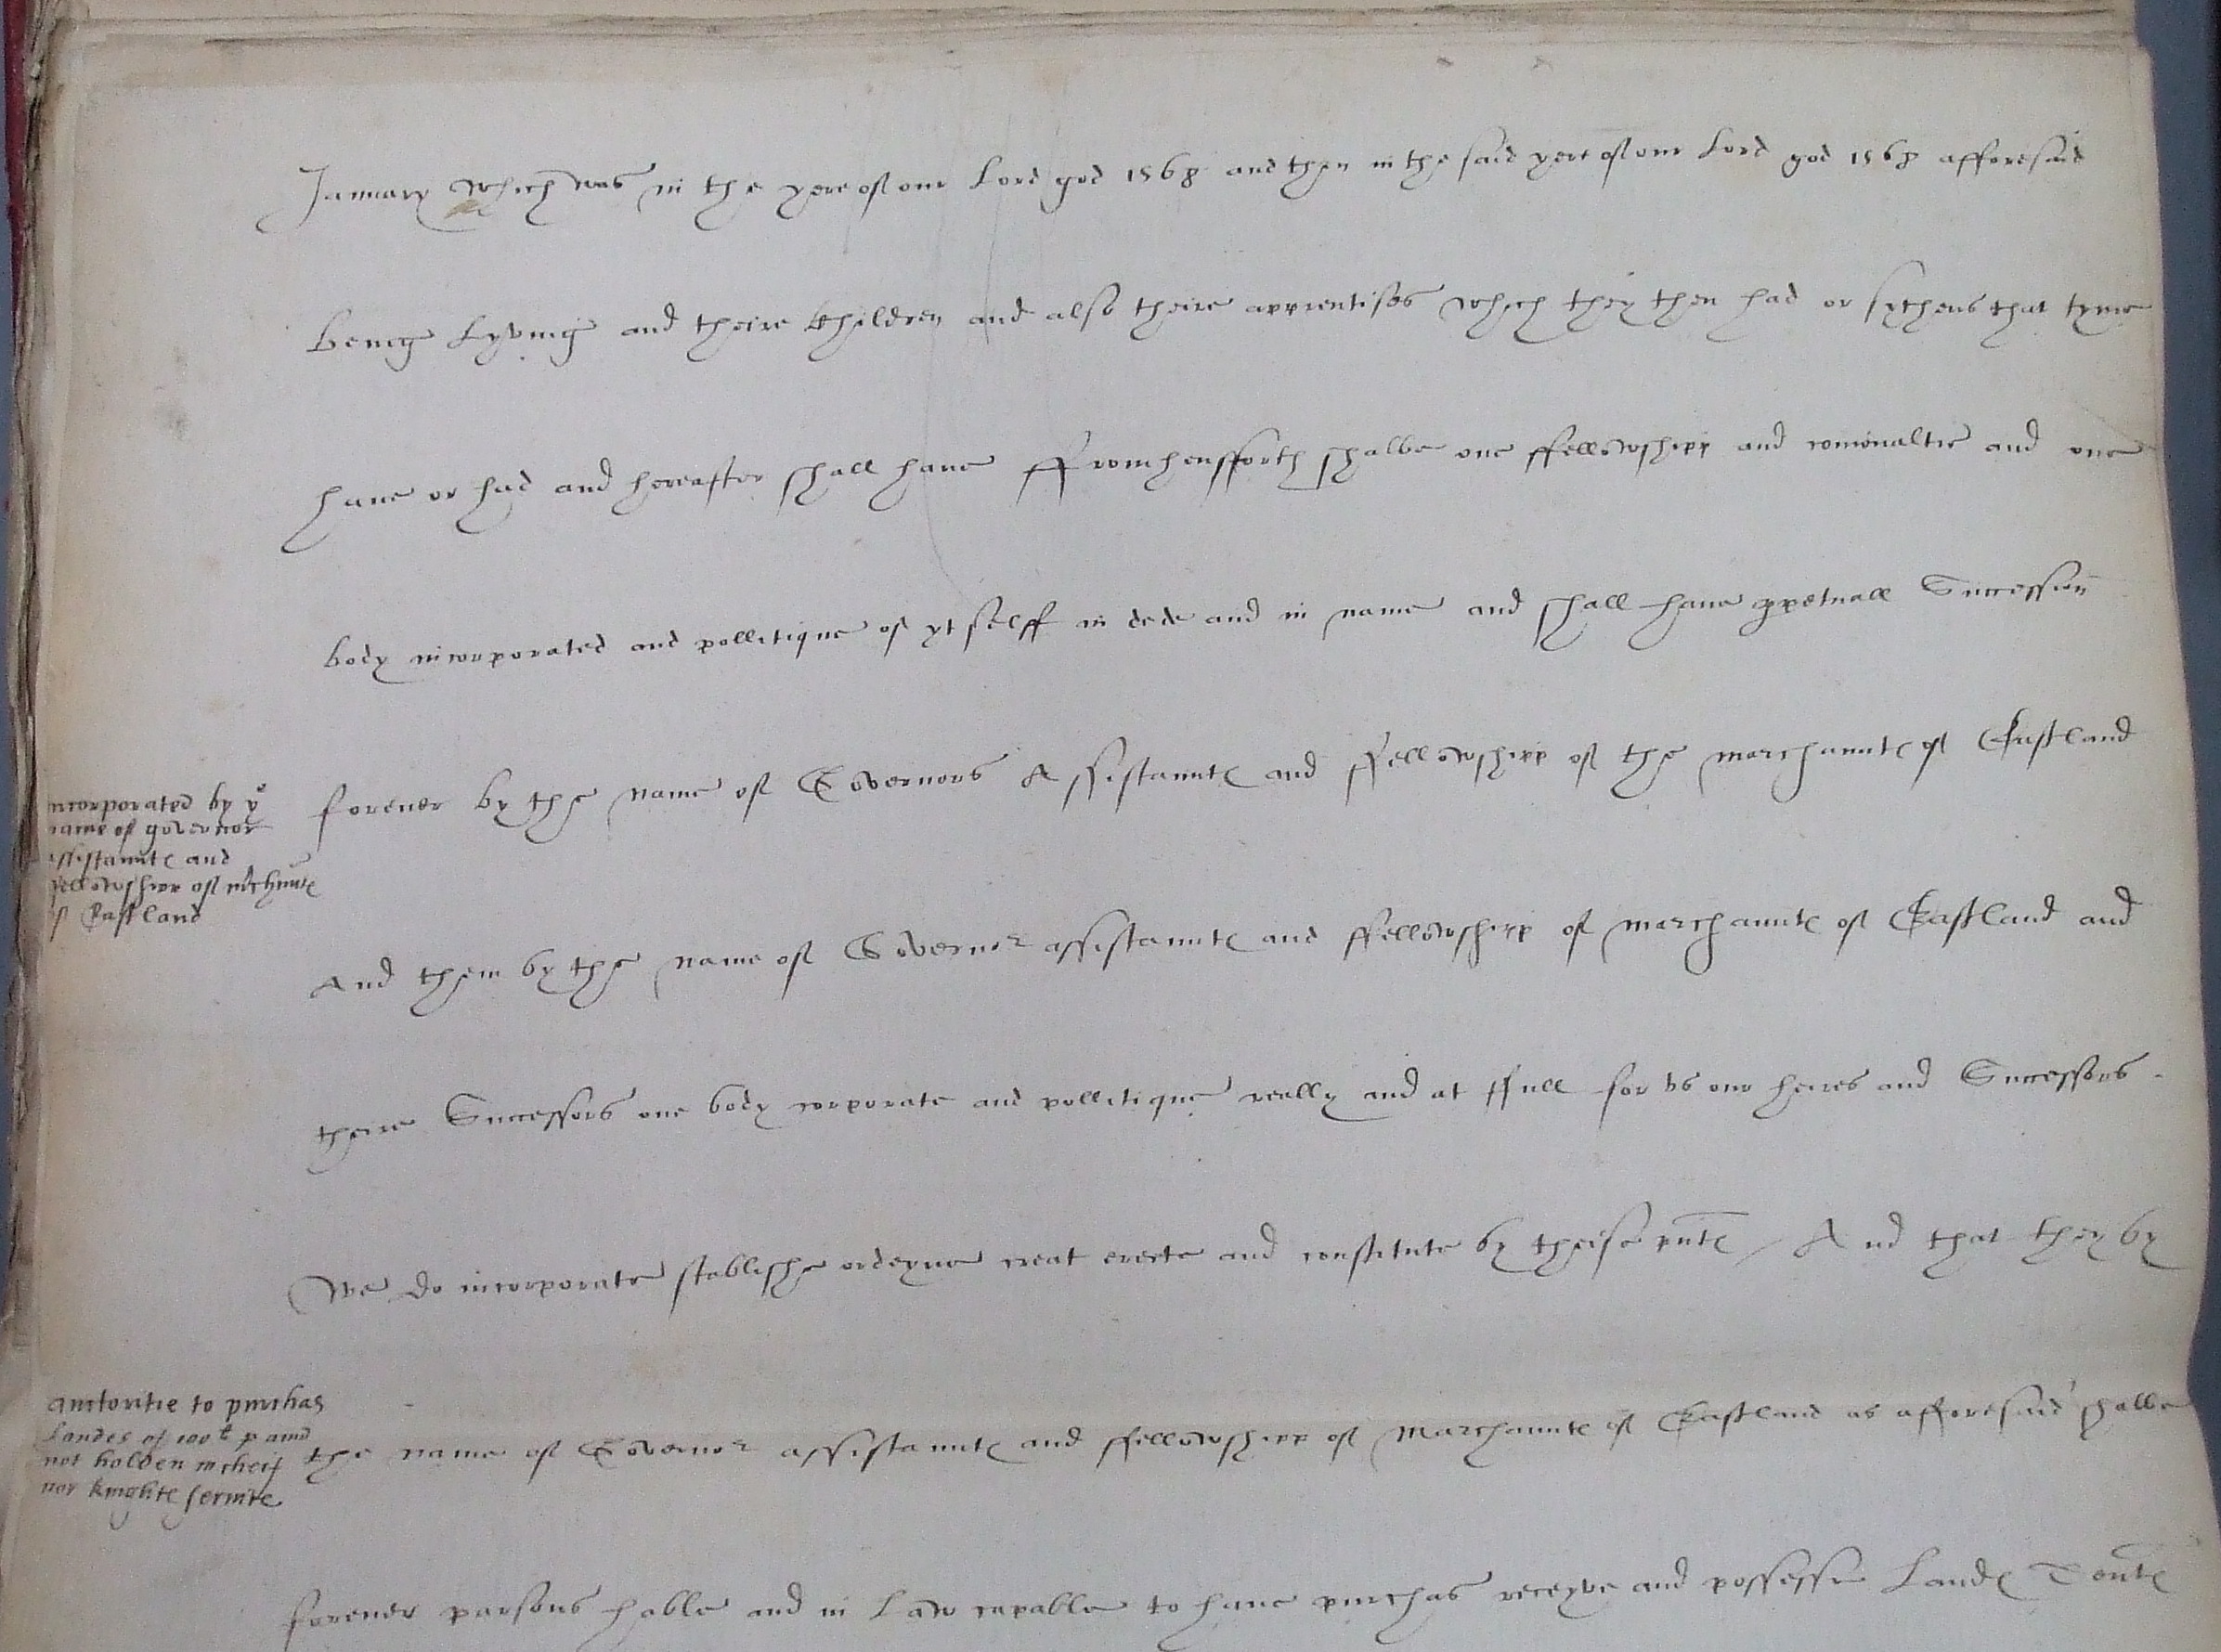 January which was in the yere of our Lord god 1568 and then in the said yere of our Lord god 1568 afforesaid
Being Lyving and theire Children and also theire apprentises which they then had or sythens that tyme
haue or had and hereafter shall haue ffromhensfforth shalbe one ffellowshipp and comonaltie and one
body incorporated and pollitique of ytselff in dede and in name and shall haue ppetuall Succession
foreuer by the name of Governors Assistauntes and ffellowshipp of the merchauntes of Eastland
ncorporated by ye
name of governor
assistauntes and
fellowshipp of mrchuntes
of Eastland
And them by the name of Governor assistauntes and ffellowshipp of merchauntes of Eastland and
theire Successors one body corporate and pollitique really and at ffull for vs our heires and Successors
We do incorporate stablishe ordeyne creat erecte and constitute by theise pntes / And that they by
auctoritie to purchas
Landes of 100l p ann
not holden in cheif
nor knightes service
the name of Governor assistauntes and ffellowshipp of Marchauntes of Eastland as afforesaid shalbe
foreuer parsons hable and in Law capable to haue purchas receyve and possesse Landes Tentes